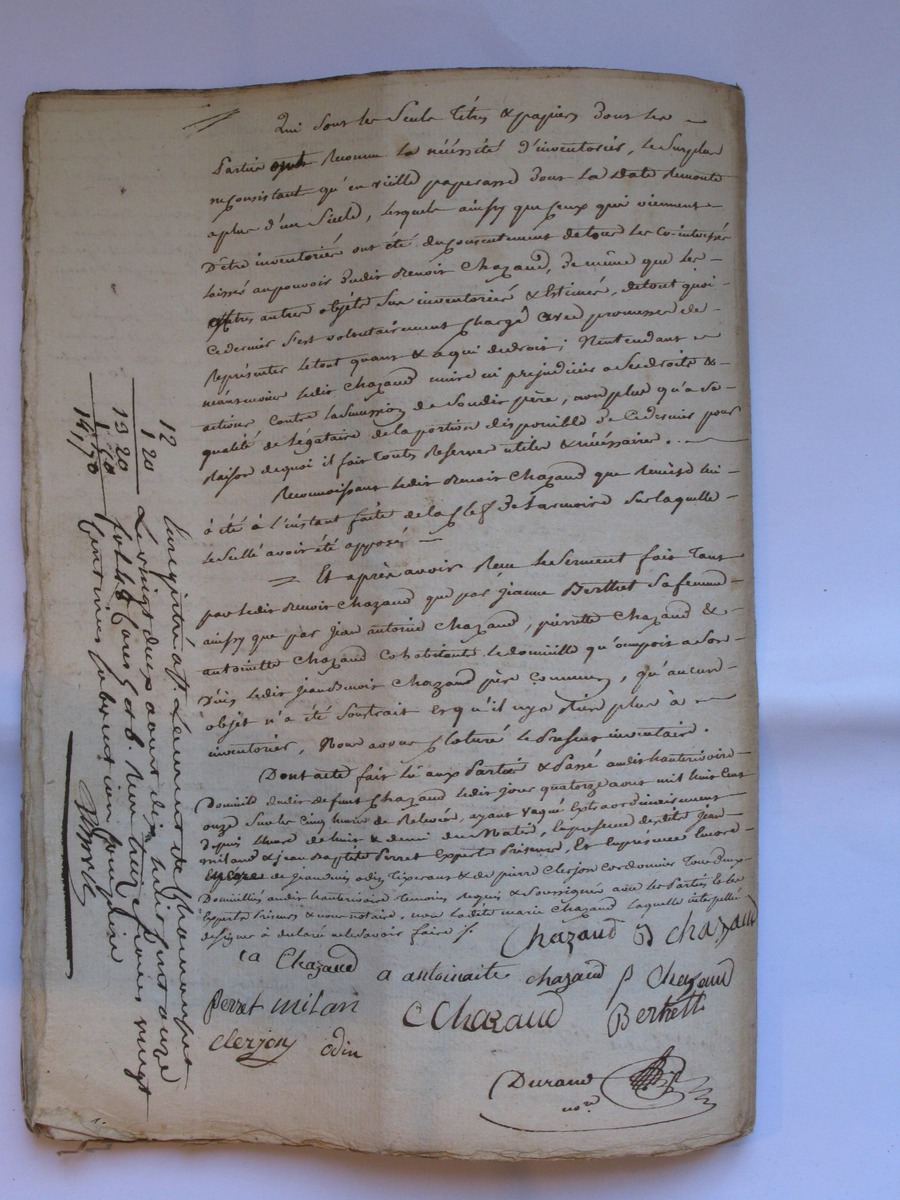 Qui sont les seuls titres & papiers dont les
Parties ont reconnu la nécéssité d'inventorier, le surplus
ne consistant qu'en vieille paperasse dont la date remonte
a plus d'un siecle, lesquels ainsy que ceux qui viennent
D'être inventoriés ont été du consentement de tous les co-interessés
laissé au pouvoir dudit Benoit Chazaud, de même que les
autres objets sus inventoriés & Estimés, de tout quoi
ce dernier s'est volontairement chargé avec promesse de
Représenter le tout quant & a qui de droit; N'entendant
néansmoins ledit Chazaud nuire ni prejudicier a ses droits &
actions contre la succession de Son dit père, non plus qu'a sa
qualité de légataire de la portion disponible de ce dernier pour
Raison de quoi il fait toutes Reserves utiles & nécéssaires.
Reconnoissant ledit Benoit Chazaud que Remise lui
à été à l'instant faite de la clef de l'armoire sur laquelle
le scellé avoit été apposé
Et après avoir Reçu le serment fait tant
par ledit Benoit Chazaud que par jeanne Berthet sa femme
ainsy que par jean antoine Chazaud, pierrette Chazaud &
antoinette Chazaud cohabitants le domicille qu'occupoit a son
Décès ledit jean Benoit Chazaud père commun, qu'aucun
objet n'a été soustrait et qu'il n'y a Rien plus à
inventorier, Nous avons cloturé le Present inventaire.
Dont acte fait lu aux Parties & Passé audit hauterivoire
Domicile dudit defunt Chazaud ledit jour quatorze aout mil huit cent
onze sur les cinq heures de Relevée, ayant vaqué Extraordinairement
depuis l'heure de huit & demi du Matin, En présence desdits jean
milan & jean Baptiste Perret Experts Priseurs, Et En présence Encore
de odin tisserant & de pierre Clerjon cordonnier tous deux
Domiciliés audit hauterivoire temoins Requis & Soussignés avec les Parties &
Experts Priseurs & nous notaire, non ladite marie Chazaud laquelle interpellée
de signer à déclaré ne le savoir faire
Chazaud B chazaud
ca Chazaud a antoinaite chazaud p Chazaud
perret milan C Chazaud Berhett
clerjon odin
Durand
nore
1.
12
1 20
13 20
1 50
14,70
Enregistré a St Laurent de Chamousset
Le vingt deux aout dix huit cent onze
fol 48 Cases 5 et 6. Reçu treize francs vingt
Centimes subvention comprise